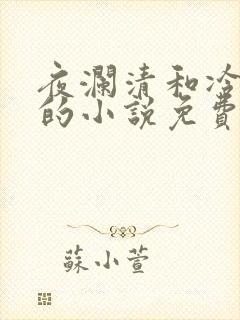 夜瀾清和冷
的小說免費
蘇小萱